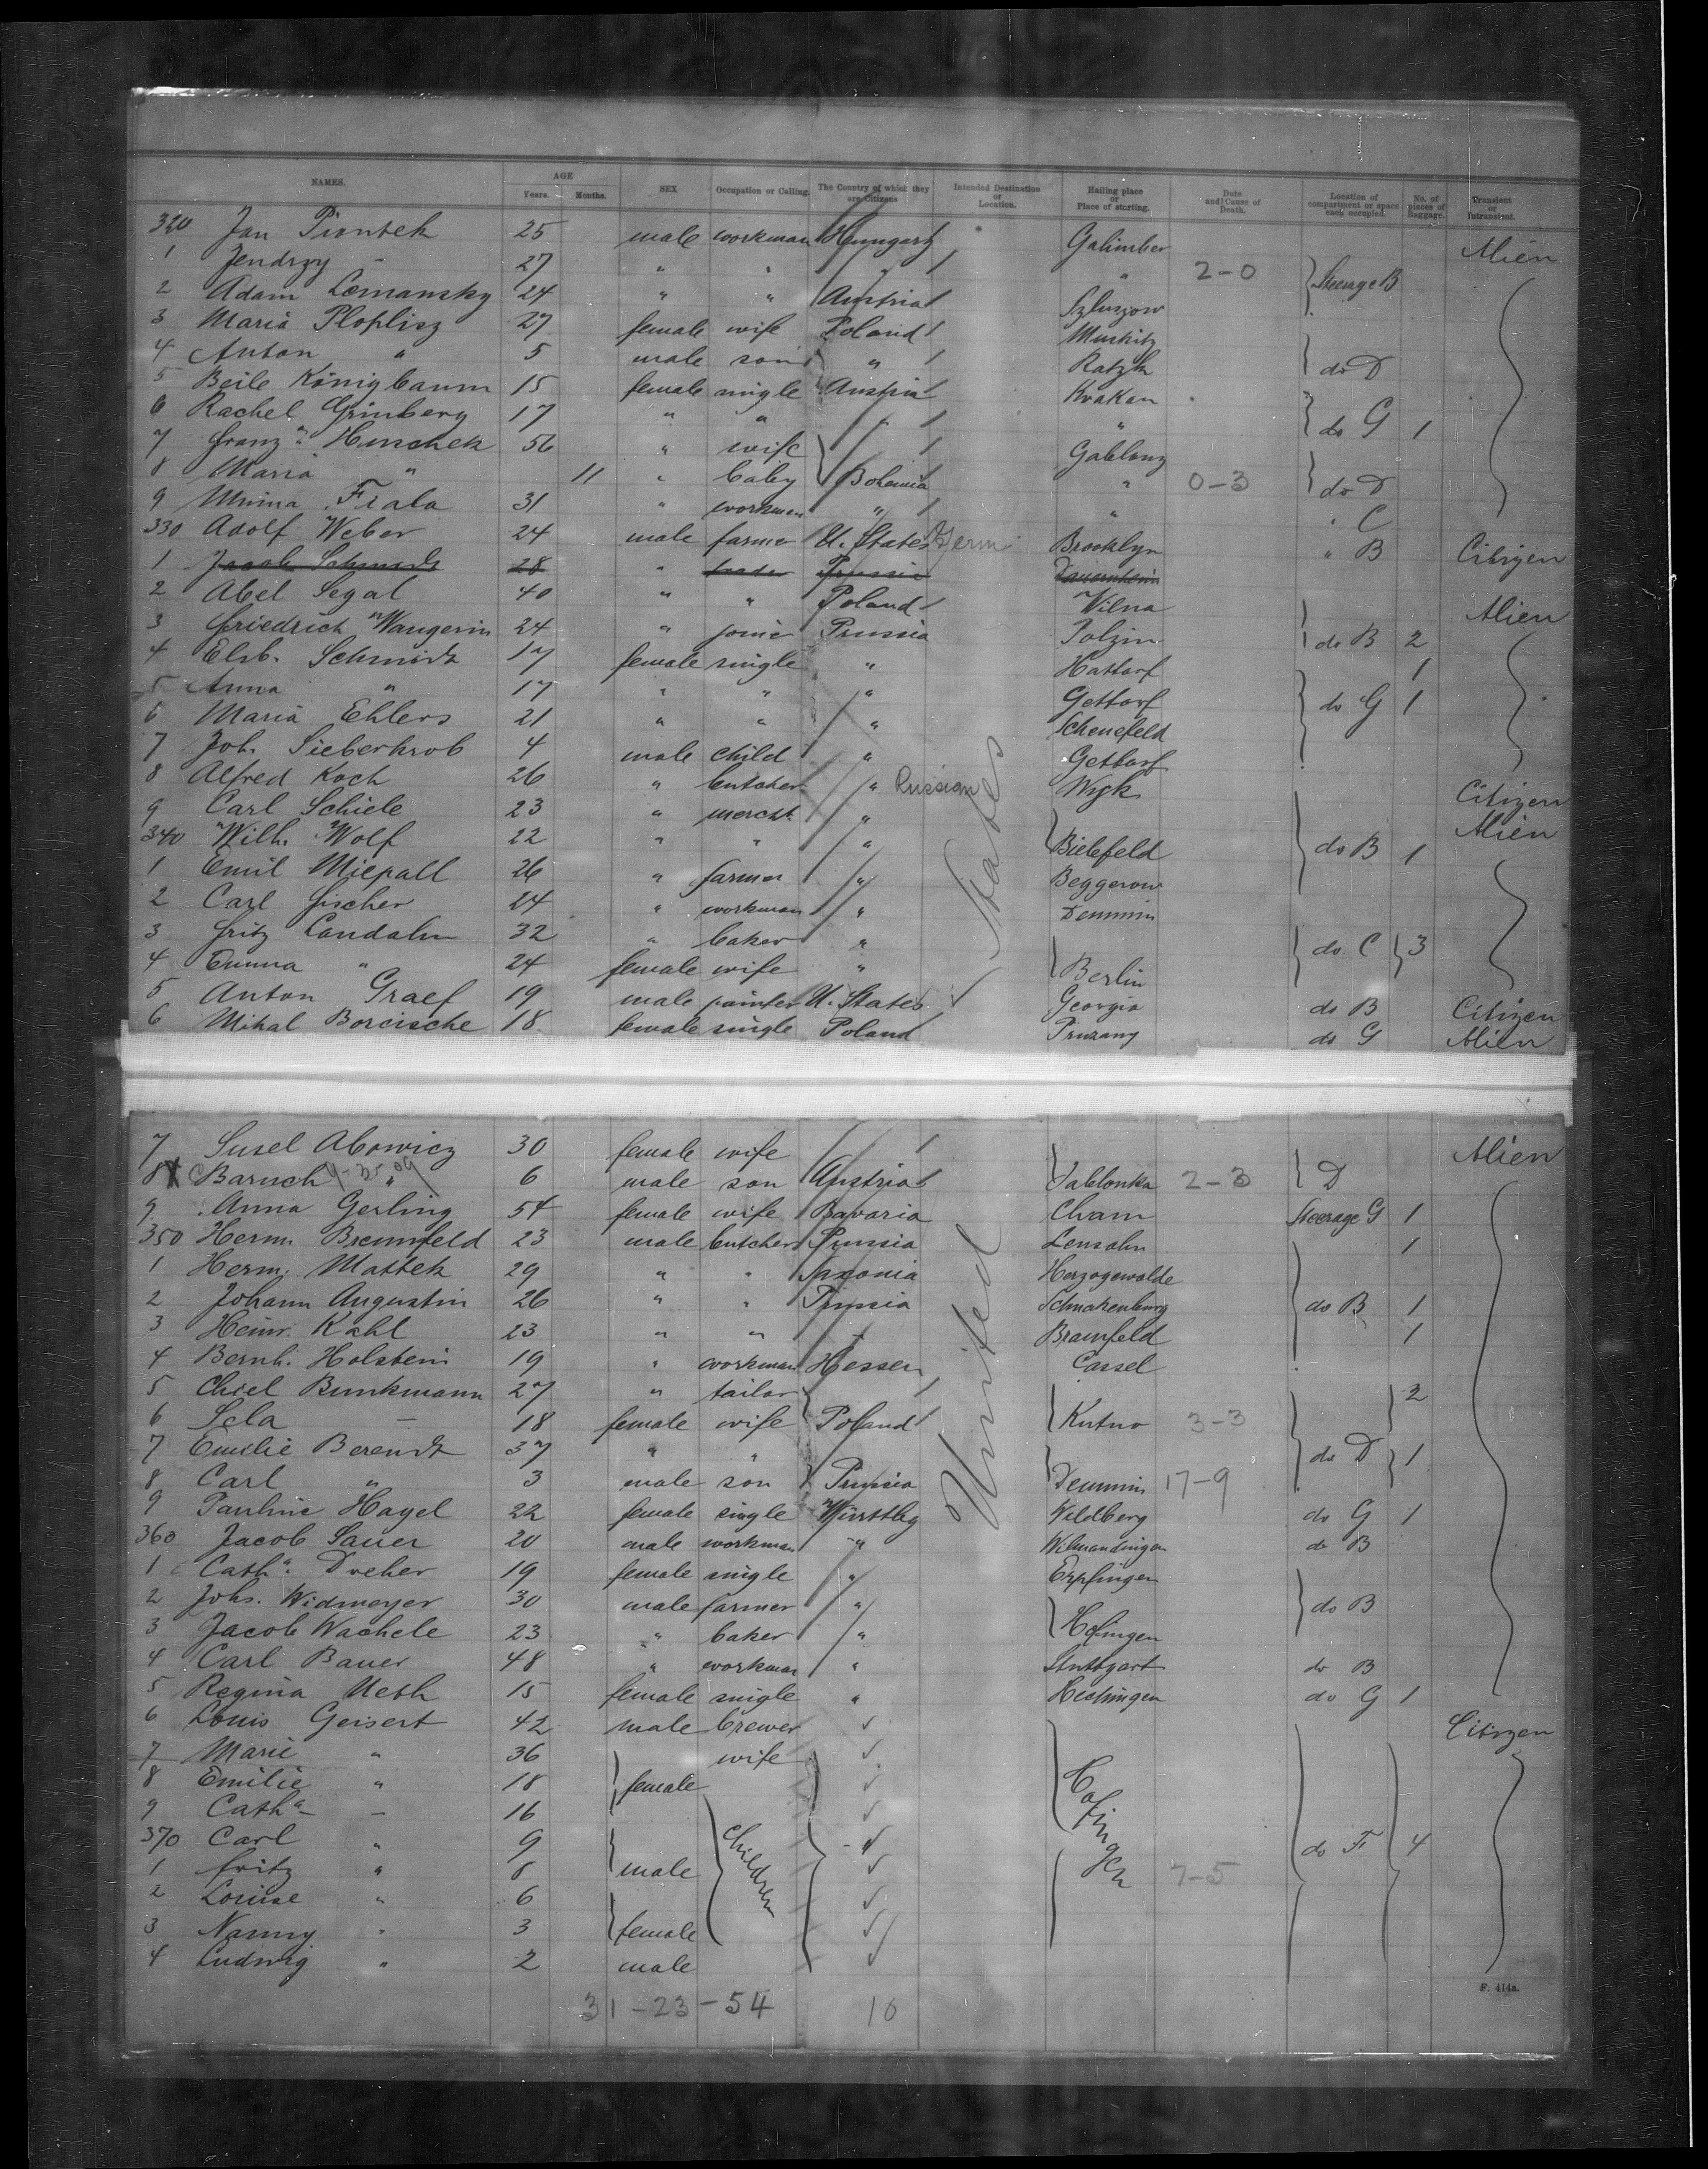 NAMES. AGE Years. Months. SEX Occupation or Calling. The Country of which they are Citizens Intended Destination or Location. Hailing place or Place of starting. Date and Cause of Death. Location of compartment or space each occupied. No. of pieces of Baggage. Transient or Intransient.
320 Jan Piontek 25 male workman Hungary Galimber Alien
1 Jendrzy - 27 " " " " 2-0 Steerage B
2 Adam Lomansky 24 " " Austria
3 Maria Ploplisz 27 female wife Poland
4 Anton " 5 male son " Ratzk do D
5 Beile Königbaum 15 female single Austria Krakau
6 Rachel Grinberg 17 " " " " do G 1
7 Franza Hunschek 56 " wife Gablonz
8 Maria " 11 " baby Bohemia " 0-3 do D
9 Minna Fiala 31 " workman " " " C
330 Adolf Weber 24 male farmer U. States Germ Brooklyn " B Citizen
1 Jacob Schmidt 28 " trader Prussia
2 Abel Segal 40 " " Poland Vilna Alien
3 Friedrich Wangerin 24 " joiner Prussia Polzin do B 2
4 Elsb. Schmidt 17 female single " Hattorf 1
5 Anna " 17 " " " Gettorf do G 1
6 Maria Ehlers 21 " " " Schenefeld
7 Joh. Sieberkrob 4 male child " Gettorf
8 Alfred Koch 26 " butcher " Russian Wyk Citizen
9 Carl Schiele 23 " mercht. " Alien
340 Wilh. Wolf 22 " " " Bielefeld do B 1
1 Emil Miepall 26 " farmer " Beggerow
2 Carl Fischer 24 " workman " Demmin
3 Fritz Landahn 32 " baker " do C 3
4 Emma " 24 female wife " Berlin
5 Anton Graef 19 male painter U. States Georgia do B Citizen
6 Mihal Borcische 18 female single Poland Pruzany do G Alien
United States
7 Susel Abowicz 30 female wife Alien
8 X Baruch " 6 male son Austria Jablonka 2-3 D
9 Anna Gerling 54 female wife Bavaria Cham Steerage G 1
350 Herm. Bremfeld 23 male butcher Prussia Lensahn 1
1 Herm. Mattek 29 " " Saxonia Herzogewalde
2 Johann Augustin 26 " " Prussia Schnakenburg do B 1
3 Heinr. Kahl 23 " " - Bramfeld 1
4 Bernh. Holstein 19 " workman Hessen Cassel
5 Chiel Bunkmann 27 " tailor 2
6 Sela - 18 female wife Poland Kutno 3-3
7 Emilie Berendt 37 " " do D 1
8 Carl " 3 male son Prussia Demmin 17-9
9 Pauline Hagel 22 female single Württbg Wildberg do G 1
360 Jacob Sauer 20 male workman " Wilmandingen do B
1 Catha Dreher 19 female single " Erpfingen
2 Johs. Widmayer 30 male farmer " do B
3 Jacob Wachele 23 " baker " Hofingen
4 Carl Bauer 48 " workman " Stuttgart do B
5 Regina Ueth 15 female single " Hechingen do G 1
6 Louis Geisert 42 male brewer Citizen
7 Marie " 36 wife
8 Emilie " 18 female
9 Catha - 16
370 Carl " 9 children " do F 4
1 Fritz " 8 male 7-5
2 Louise " 6
3 Nanny " 3 female
4 Ludwig " 2 male
31-23-54 10
F. 414a.